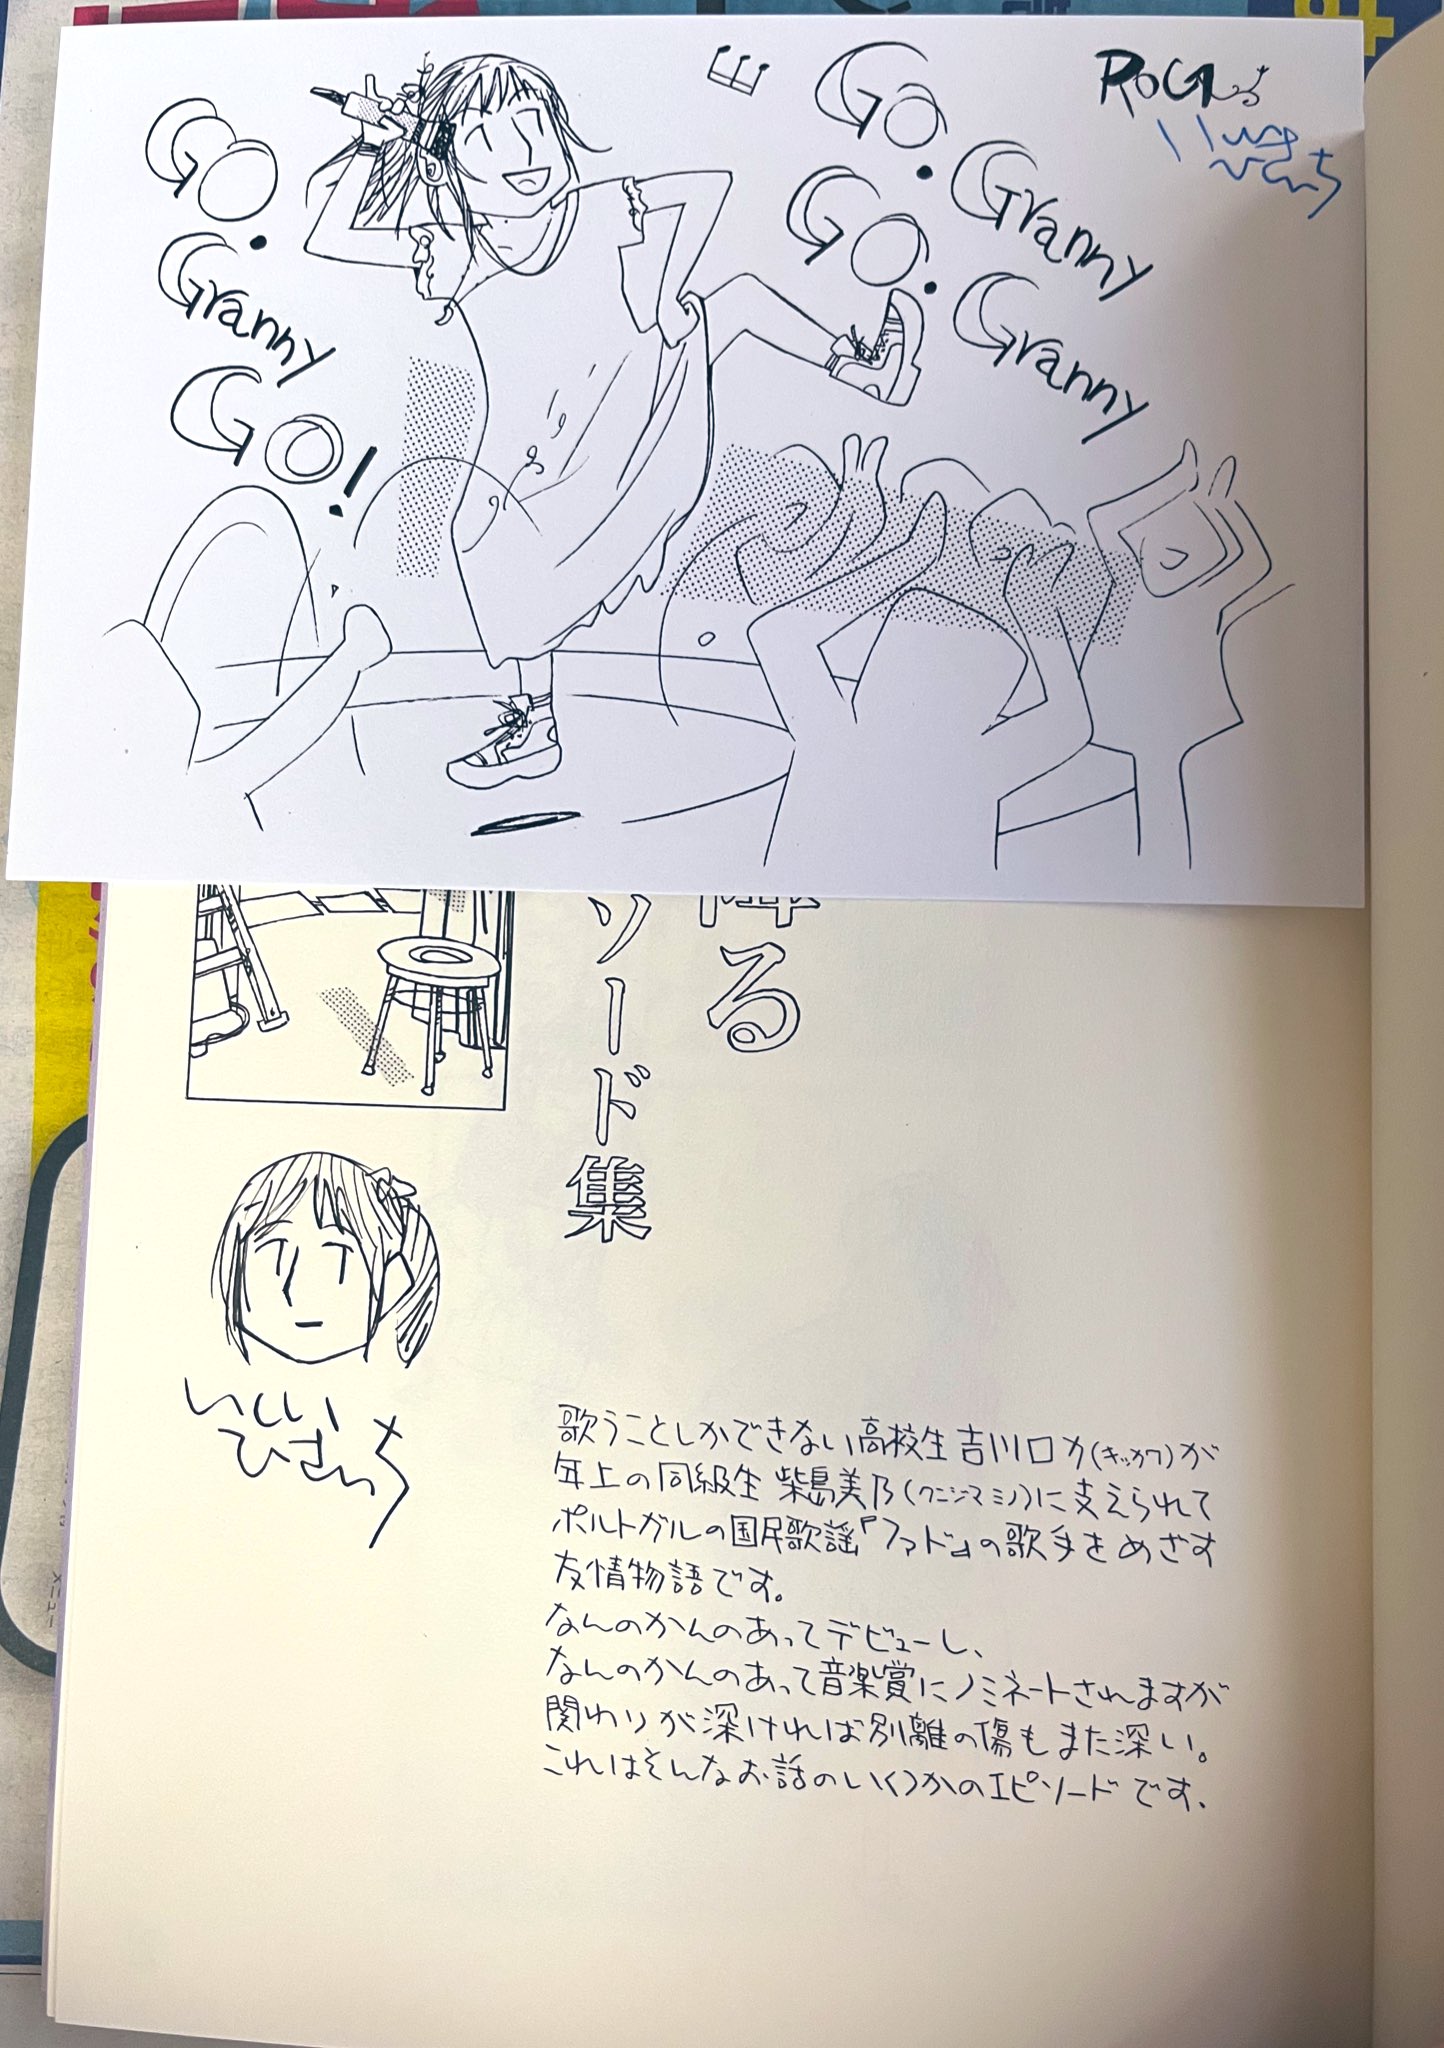 GO.
Granny
GO!
GO.
Granny
GO.
Granny
ROCA
いしい
ひさいち
降る
ソード集
いしい
ひさいち
歌うことしかできない高校生 吉川ロカ(キッカワ)が
年上の同級生 柴島美乃(クニジマミノ)に支えられて
ポルトガルの国民歌謡『ファド』の歌手をめざす
友情物語です。
なんのかんのあってデビューし、
なんのかんのあって音楽賞にノミネートされますが
関わりが深ければ別離の傷もまた深い。
これはそんなお話のいくつかのエピソードです.